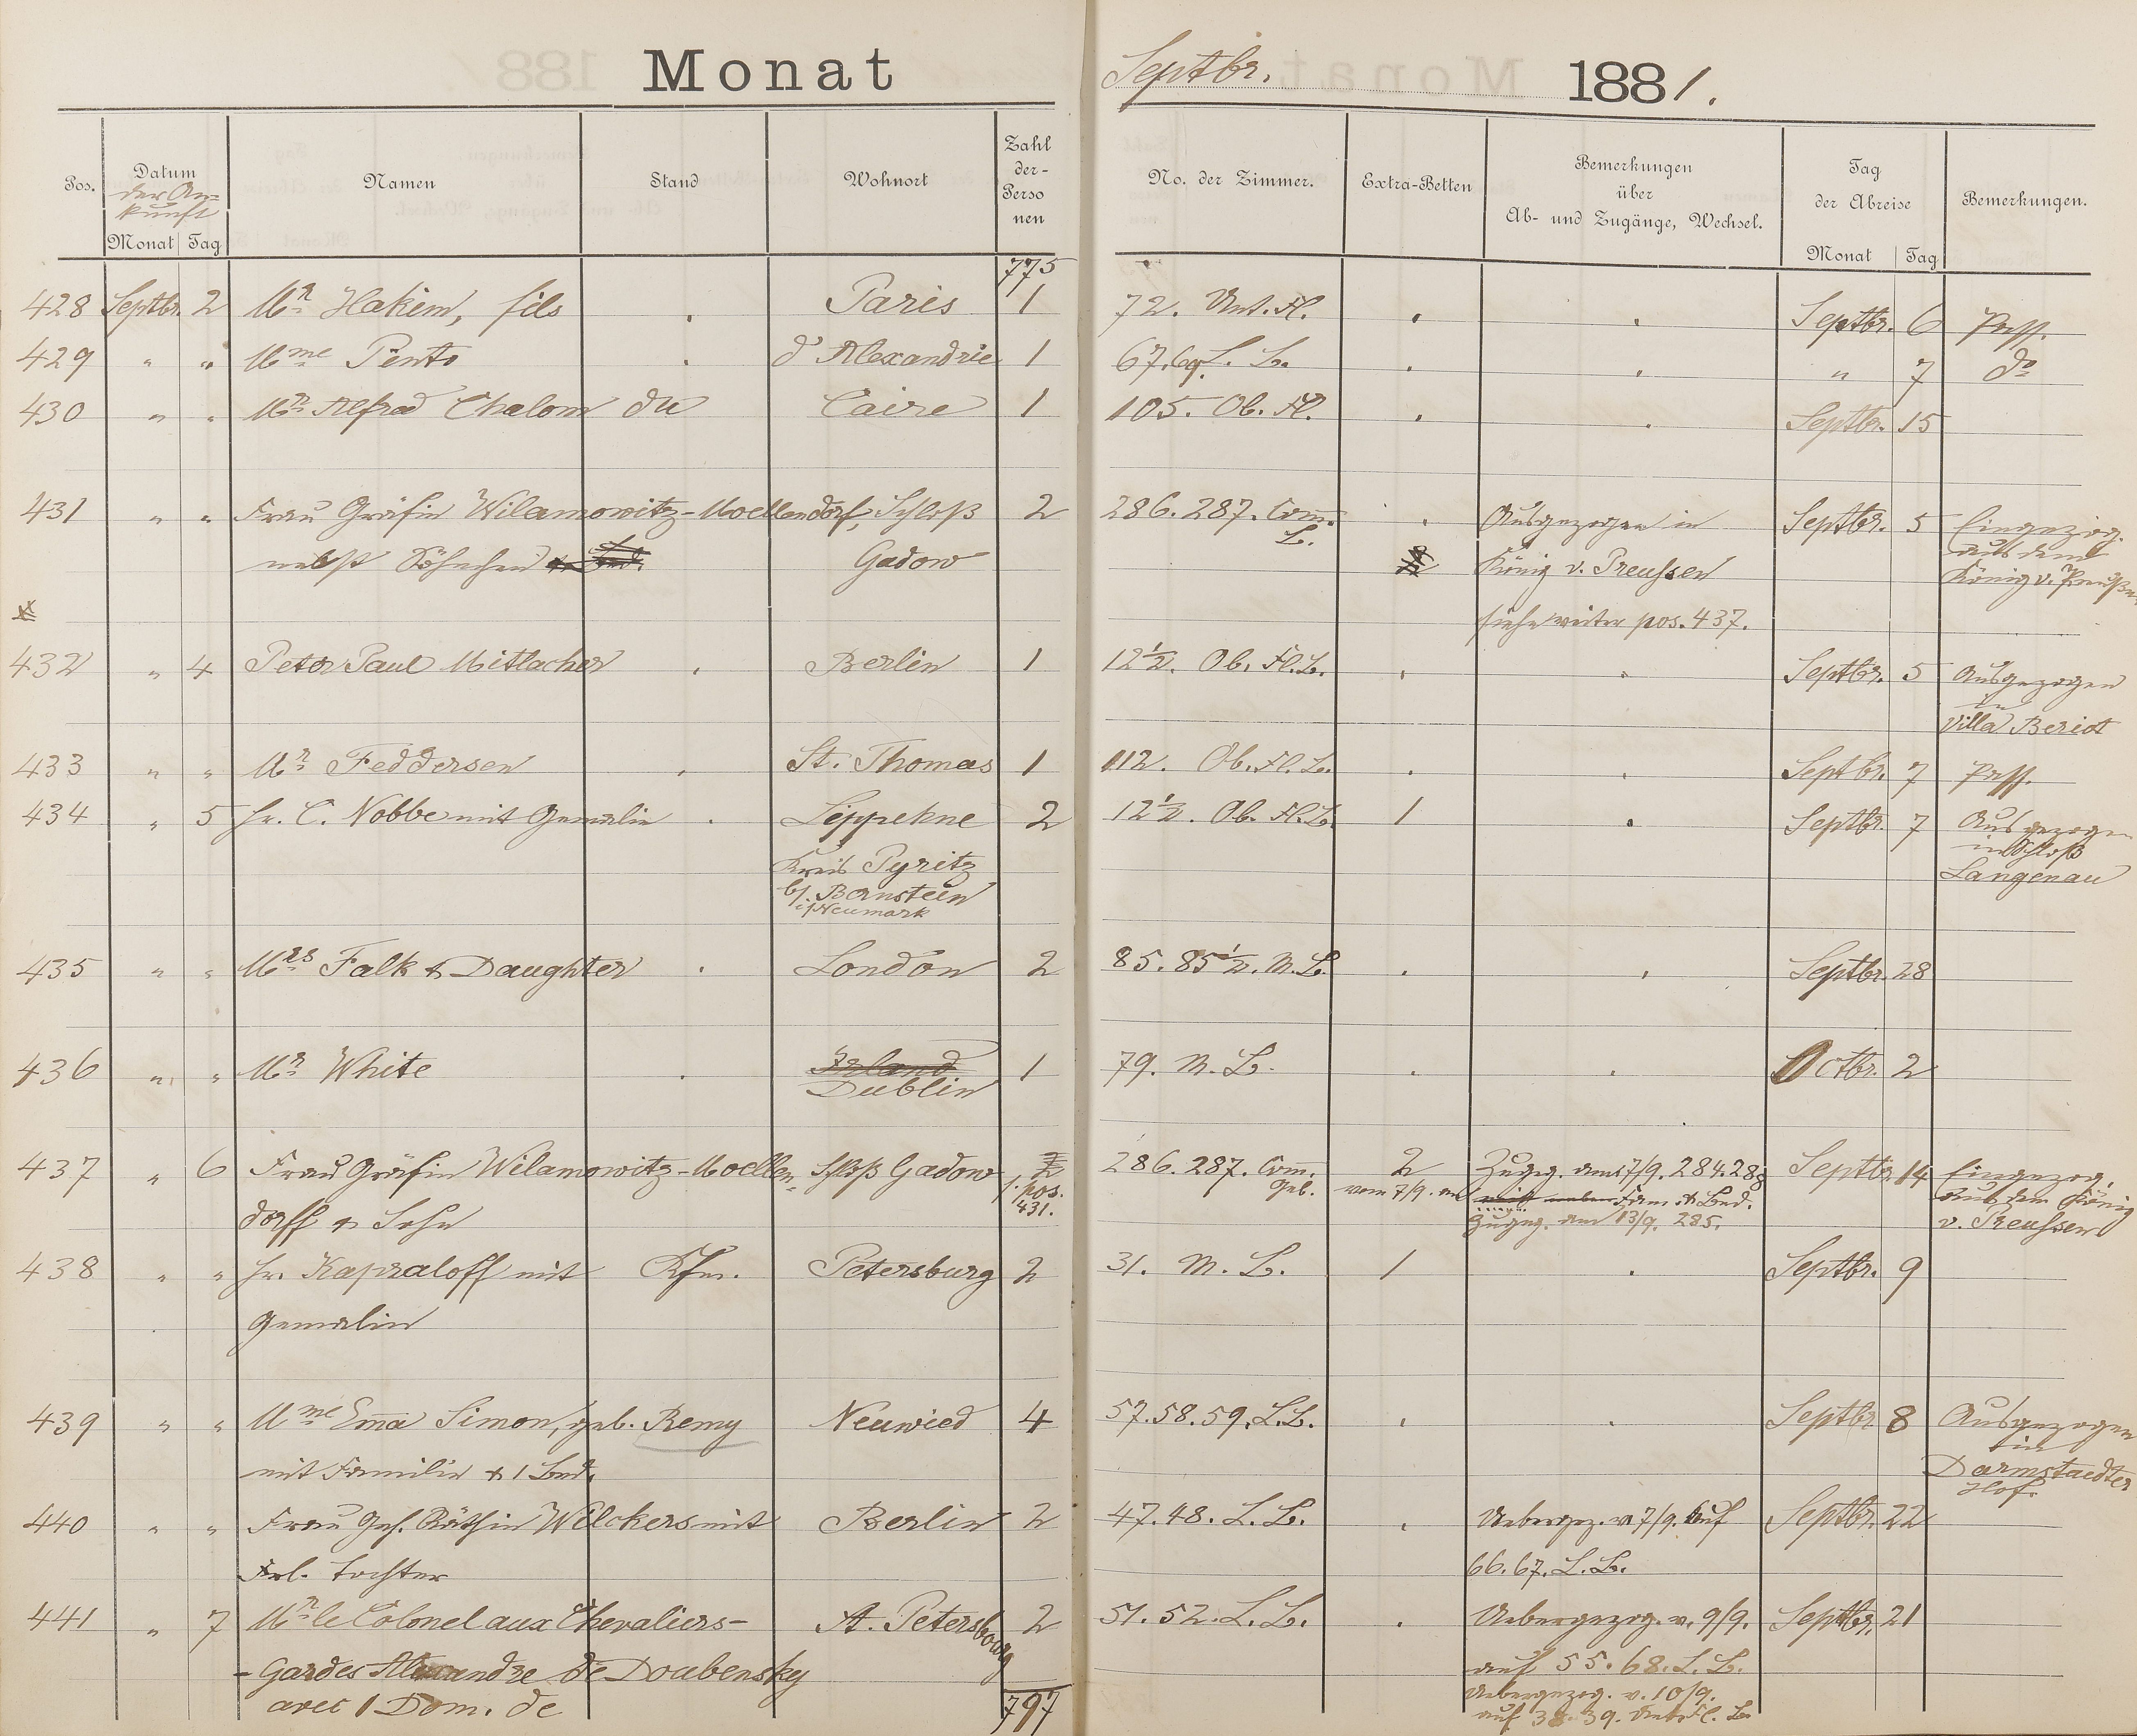 Monat Septbr. 1881.
Pos. Datum der Ankunft Monat Tag Namen Stand Wohnort Zahl der Personen No. der Zimmer. Extra-Betten Bemerkungen über Ab- und Zugänge, Wechsel. Tag der Abreise Monat Tag Bemerkungen.
775
428 Septbr. 2 Mr. Hakim, fils . Paris 1 72. Unt. Fl. . . Septbr. 6 Pass.
429 " " Mme Pinto . d'Alexandrie 1 67.69. L. L. . . " 7 do
430 " " Mr. Alfred Chalom du Caire 1 105. Ob. Fl. . . Septbr. 15
431 " " Frau Gräfin Wilamowitz-Moellendorf, Schloß 2 286. 287. Com. . Ausgezogen in Septbr. 5 Eingezog.
nebst Söhnchen Gadow L. König v. Preussen aus dem
siehe weiter pos. 437. König v. Preußen
432 " 4 Peter Paul Mitlacher . Berlin 1 12½. Ob. Fl. L. . . Septbr. 5 Ausgezogen
in
Villa Beriot
433 " " Mr. Feddersen . St. Thomas 1 112. Ob. Fl. L. . . Septbr. 7 Pass.
434 " 5 Hr. C. Nobbe mit Gemalin . Lippehne 2 12½. Ob. Fl. L. 1 . Septbr. 7 Ausgezogen
Kreis Pyritz in Schloß
b/ Bernstein Langenau
i/Neumark
435 " " Mrs Falk & Daughter . London 2 85. 85½. M. L. . . Septbr. 28
436 " " Mr. White . Irland 1 79. M. L. . . Octbr. 2
Dublin
437 " 6 Frau Gräfin Wilamowitz-Moellen- Schloß Gadow 2 286. 287. Com. 2 Zugez. am 7/9. 284. 288 Septbr. 14 Eingezog.
dorff & Sohn s. pos. 431. Geb. vom 7/9. an Fam. & Bed. aus dem König
Zugez. am 13/9. 285. v. Preussen
438 " " Hr. Kapraloff mit Kfm. Petersburg 2 31. M. L. 1 . Septbr. 9
Gemalin
439 " " Mme Emma Simon, geb. Remy Neuwied 4 57. 58. 59. L. L. . . Septbr. 8 Ausgezogen
mit Familie & 1 Bed. in
Darmstaedter
Hof.
440 " " Frau Geh. Räthin Welckers mit Berlin 2 47. 48. L. L. . Uebergez. v. 7/9. auf Septbr. 22
Frl. Tochter 66. 67. L. L.
441 " 7 Mr. le Colonel aux Chevaliers- St. Petersbourg 2 51. 52. L. L. . Uebergezog. v. 9/9. Septbr. 21
-Gardes Alexandre de Doubensky auf 55. 68. L. L.
avec 1 Dom. de 797 Uebergezog. v. 10/9.
auf 38. 39. Unt. Fl. L.